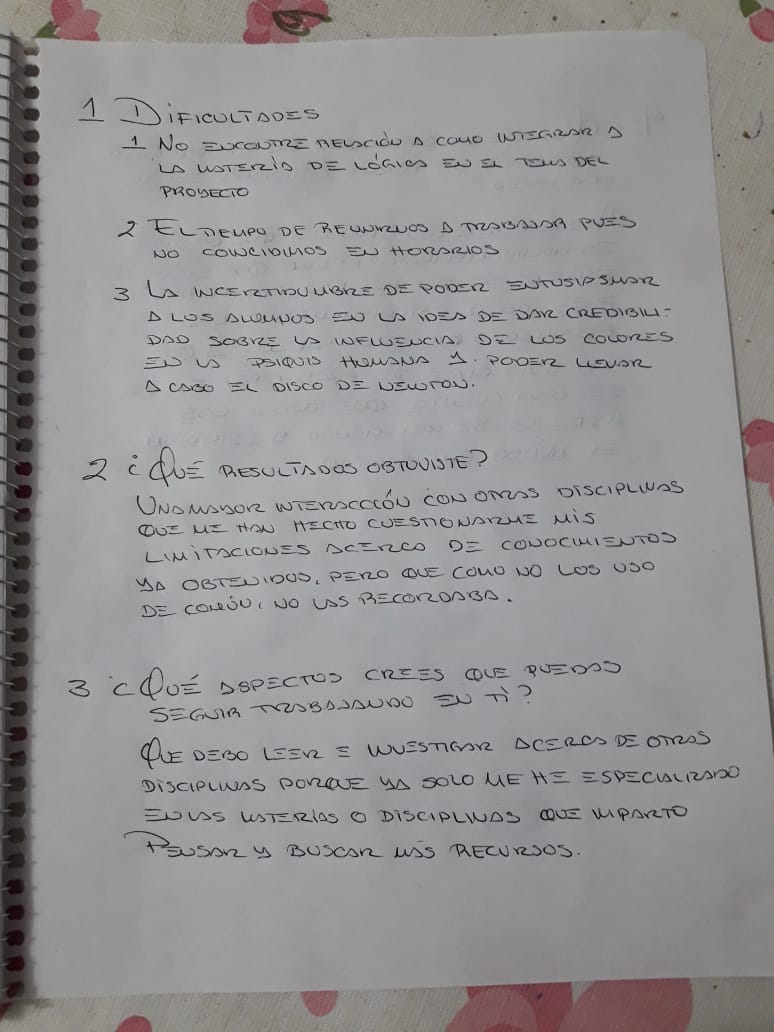 1 DIFICULTADES
1 NO ENCONTRE RELACIÓN A COMO INTEGRAR A
LA MATERIA DE LÓGICA EN EL TEMA DEL
PROYECTO
2 EL TIEMPO DE REUNIRNOS A TRABAJAR PUES
NO COINCIDIMOS EN HORARIOS
3 LA INCERTIDUMBRE DE PODER ENTUSIASMAR
A LOS ALUMNOS EN LA IDEA DE DAR CREDIBILI-
DAD SOBRE LA INFLUENCIA DE LOS COLORES
EN LA PSIQUIS HUMANA Y. PODER LLEVAR
A CABO EL DISCO DE NEWTON.
2 ¿QUÉ RESULTADOS OBTUVISTE?
UNA MAYOR INTERACCCIÓN CON OTRAS DISCIPLINAS
QUE ME HAN HECHO CUESTIONARME MIS
LIMITACIONES ACERCA DE CONOCIMIENTOS
YA OBTENIDOS, PERO QUE COMO NO LOS USO
DE COMÚN, NO LAS RECORDABA.
3 ¿QUÉ ASPECTOS CREES QUE PUEDAS
SEGUIR TRABAJANDO EN TÌ?
QUE DEBO LEER E INVESTIGAR ACERCA DE OTRAS
DISCIPLINAS PORQUE YA SOLO ME HE ESPECIALIZADO
EN LAS MATERIAS O DISCIPLINAS QUE IMPARTO
PENSAR Y BUSCAR MÁS RECURSOS.